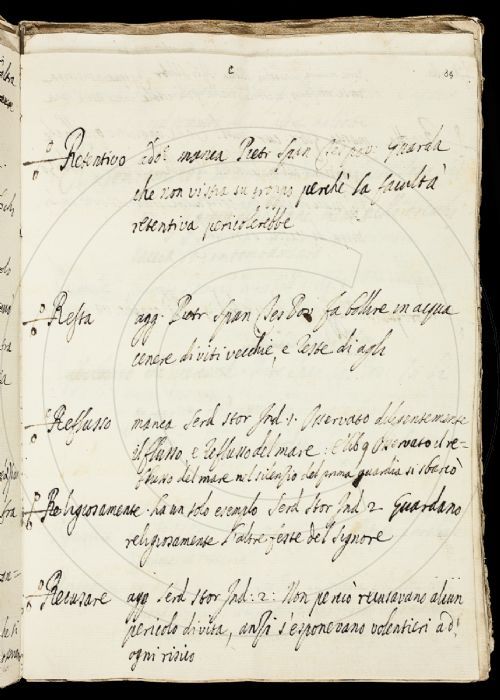 c
Retentivo add: manca Pietr Span Guarda
che non vi stia su troppo perchè la facultà
retentiva pericolerebbe
Resta agg. Pietr Span Tes Pov fa bollire in acqua
cenere di viti vecchie, e teste di agli
Reflusso manca Serd Stor Ind 1. Osservato diligentemente
il flusso, e reflusso del mare: E lib 9 Osservato il re=
flusso del mare nel silenzio del prima guardia si sbarcò
Religiosamente ha un solo esempio Serd Stor Ind 2 Guardano
religiosamente l'altre feste del Signore
Recusare agg Serd Stor Ind: 2: Non perciò recusavano alcun
pericolo di vita, anzi s'esponevano volentieri ad
ogni risico